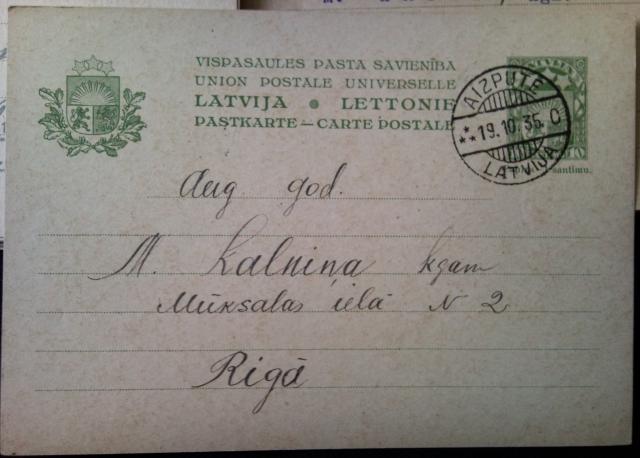 VISPASAULES PASTA SAVIENĪBA
UNION POSTALE UNIVERSELLE
LATVIJA • LETTONIE
PASTKARTE — CARTE POSTALE
AIZPUTE
19.10.35. 0
LATVIJA
10
santimu.
Aug god.
M. Kalniņa kgam
Mūksalas ielā N 2
Rīgā